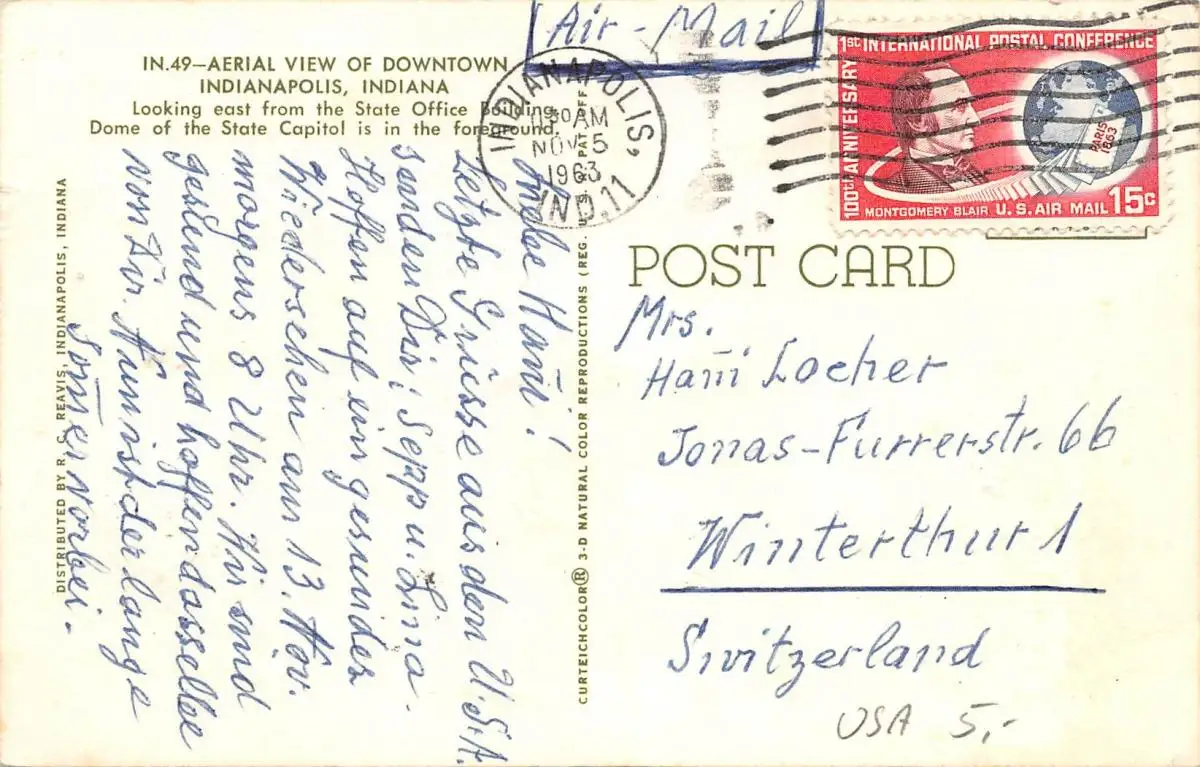 Air-Mail
IN.49—AERIAL VIEW OF DOWNTOWN
INDIANAPOLIS, INDIANA
Looking east from the State Office Building.
Dome of the State Capitol is in the foreground.
INDIANAPOLIS,
AM
NOV 5
1963
IND. 11
1SC INTERNATIONAL POSTAL CONFERENCE
100th ANNIVERSARY
PARIS
1863
MONTGOMERY BLAIR U.S. AIR MAIL 15c
POST CARD
Mrs.
Hañi Locher
Jonas-Furrerstr. 66
Winterthur 1
Switzerland
USA 5,-
Liebe Hañi!
Letzte Grüsse aus den U.S.A.
senden Dir, Sepp u. Lina.
Hoffen auf ein gesundes
Wiedersehen am 13. Nov.
morgens 8 Uhr. Wir sind
gesund und hoffen dasselbe
von Dir. Nun ist der lange
Som̄er vorbei.-
DISTRIBUTED BY R. C. REAVIS, INDIANAPOLIS, INDIANA
CURTEICHCOLOR® 3-D NATURAL COLOR REPRODUCTIONS (REG. U.S.A. PAT. OFF.